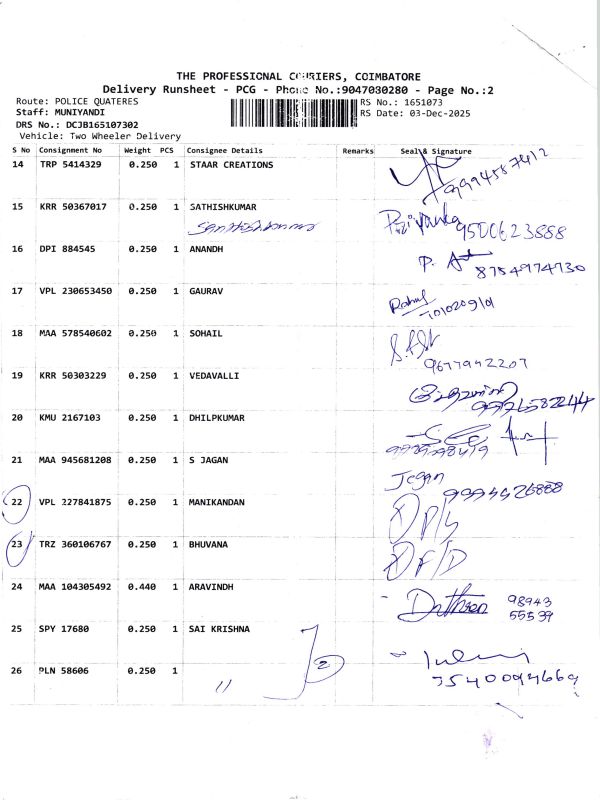 THE PROFESSIONAL COURIERS, COIMBATORE
Delivery Runsheet - PCG - Phone No.:9047030280 - Page No.:2
Route: POLICE QUATERES
RS No.: 1651073
Staff: MUNIYANDI
RS Date: 03-Dec-2025
DRS No.: DCJB165107302
Vehicle: Two Wheeler Delivery
S No Consignment No Weight PCS Consignee Details Remarks Seal & Signature
14 TRP 5414329 0.250 1 STAAR CREATIONS
9994587412
15 KRR 50367017 0.250 1 SATHISHKUMAR
Priyanka 9500623888
16 DPI 884545 0.250 1 ANANDH
8754974730
17 VPL 230653450 0.250 1 GAURAV
Rahul
18 MAA 578540602 0.250 1 SOHAIL
9677942207
19 KRR 50303229 0.250 1 VEDAVALLI
20 KMU 2167103 0.250 1 DHILPKUMAR
21 MAA 945681208 0.250 1 S JAGAN
Jegan
9994526888
22 VPL 227841875 0.250 1 MANIKANDAN
23 TRZ 360106767 0.250 1 BHUVANA
24 MAA 104305492 0.440 1 ARAVINDH
98943
55539
25 SPY 17680 0.250 1 SAI KRISHNA
2
26 PLN 58606 0.250 1